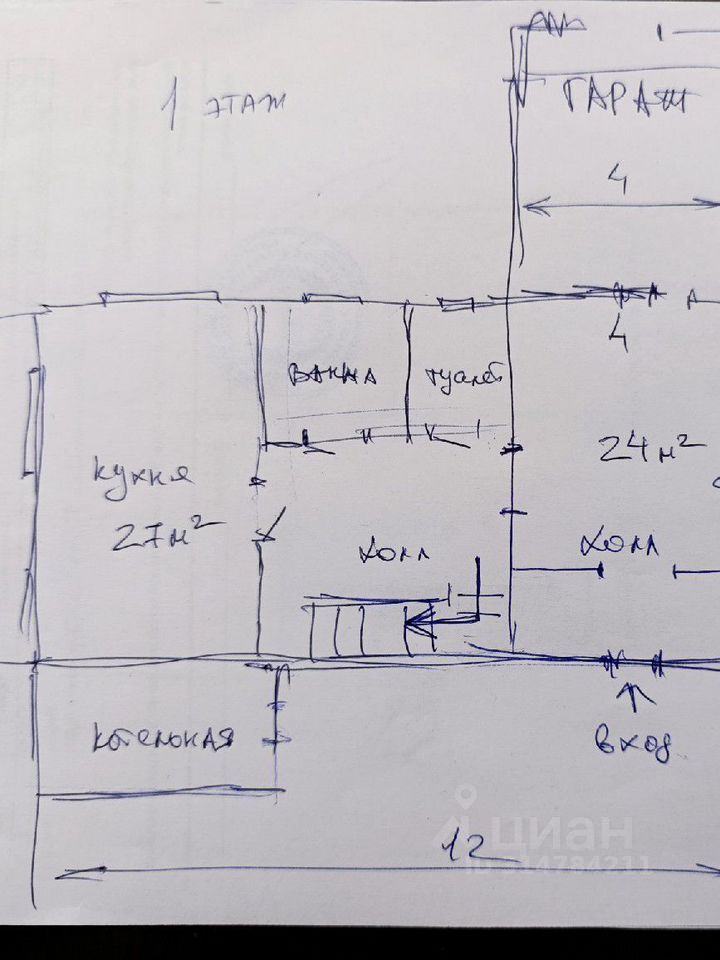 1 этаж
ГАРАЖ
4
4
ванна
туалет
24 м²
кухня
27 м²
холл
холл
котельная
вход
циан
12